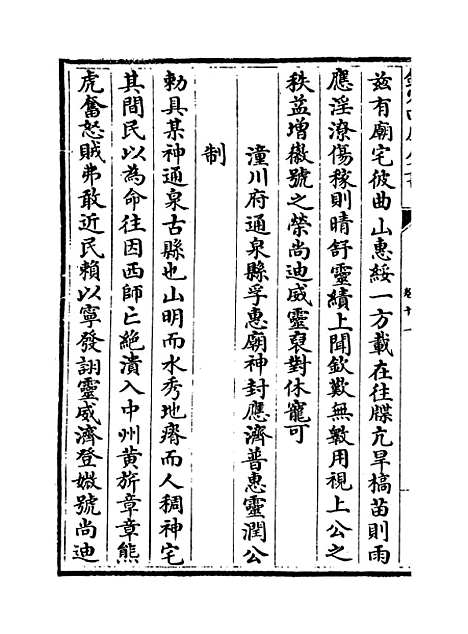 兹有廟宅彼曲山惠綏一方載在往牒亢旱槁苗則雨
應淫潦傷稼則晴舒靈績上聞欽歎無斁用視上公之
秩益增徽號之榮尚迪威靈裒對休寵可
潼川府通泉縣孚惠廟神封應濟普惠靈潤公
制
勅具某神通泉古縣也山明而水秀地瘠而人稠神宅
其間民以為命往因西師亡絶潰入中州黄旂章章熊
虎奮怒賊弗敢近民賴以寧發詡靈威濟登媺號尚迪